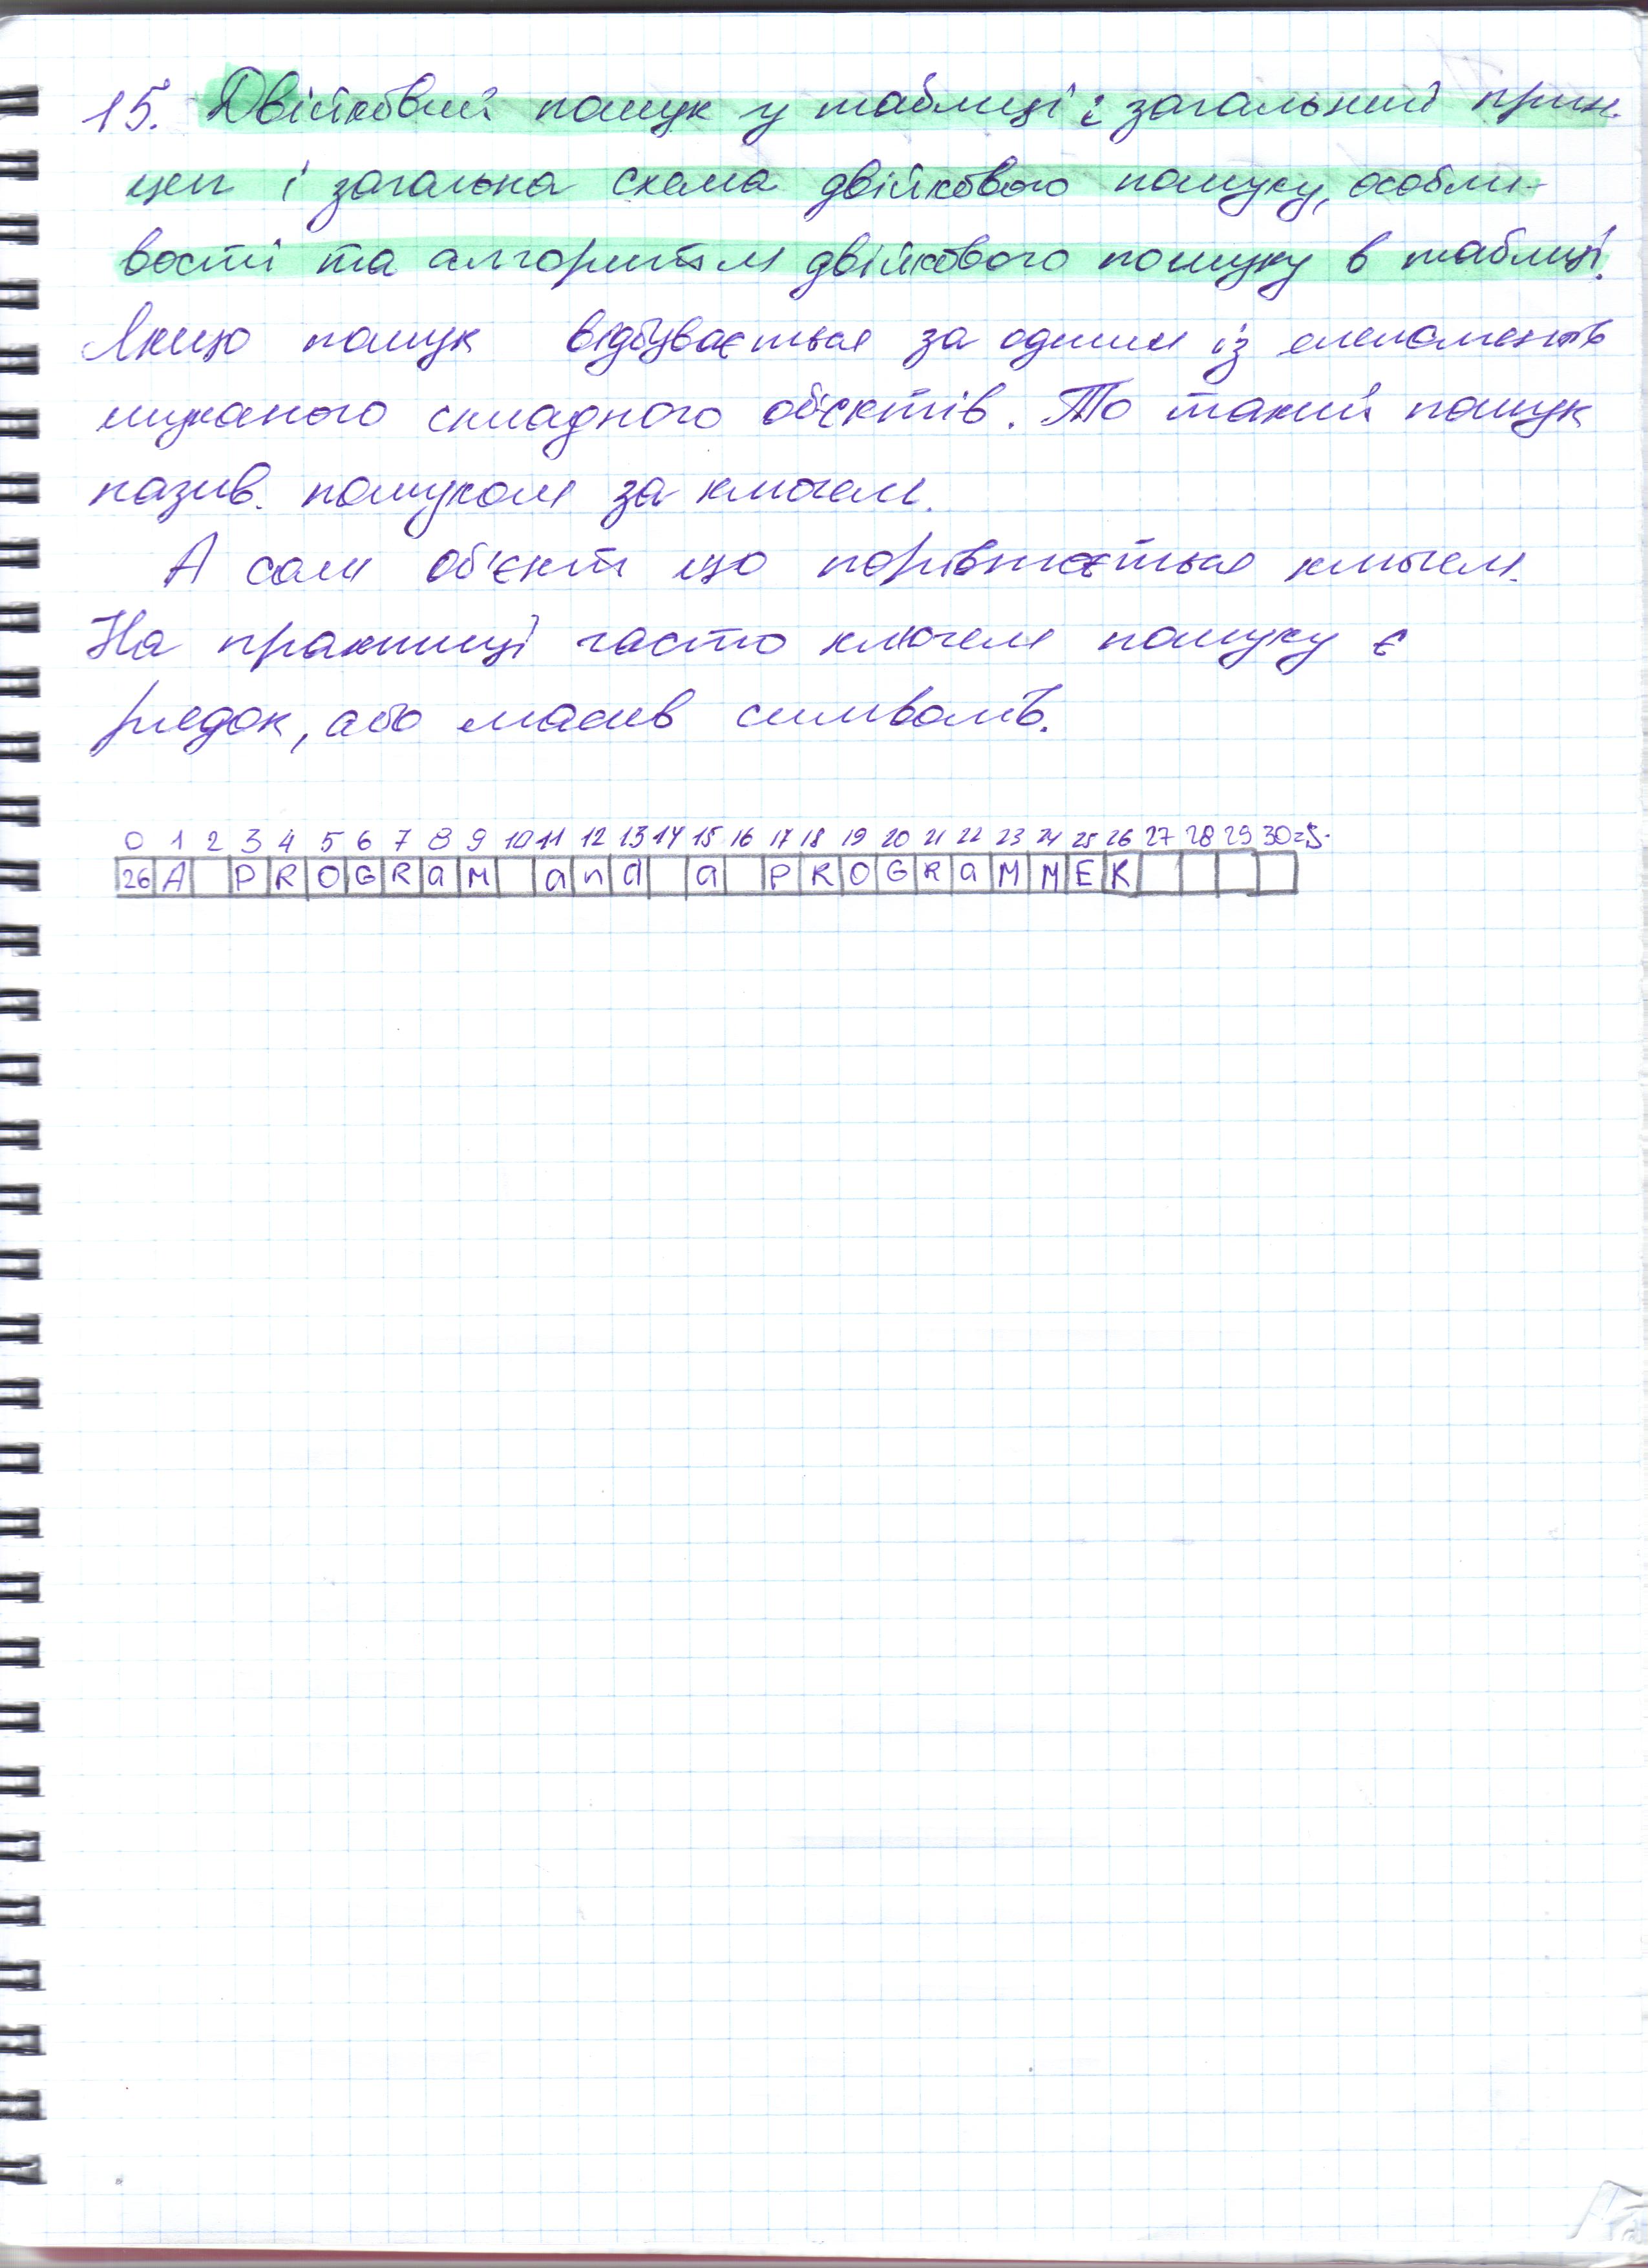 15. Двійковий пошук у таблиці: загальний прин-
цеп і загальна схема двійкового пошуку, особли-
вості та алгоритм двійкового пошуку в таблиці.
Якщо пошук відбувається за одним із елементів
шуканого складного обєктів. То такий пошук
назив. пошуком за ключем.
А сам об'єкт що порівнюється ключем.
На практиці часто ключем пошуку є
рядок, або масив символів.
0 1 2 3 4 5 6 7 8 9 10 11 12 13 14 15 16 17 18 19 20 21 22 23 24 25 26 27 28 29 30=S.
26 A P R O G R a M a n d a P R O G R a M M E R